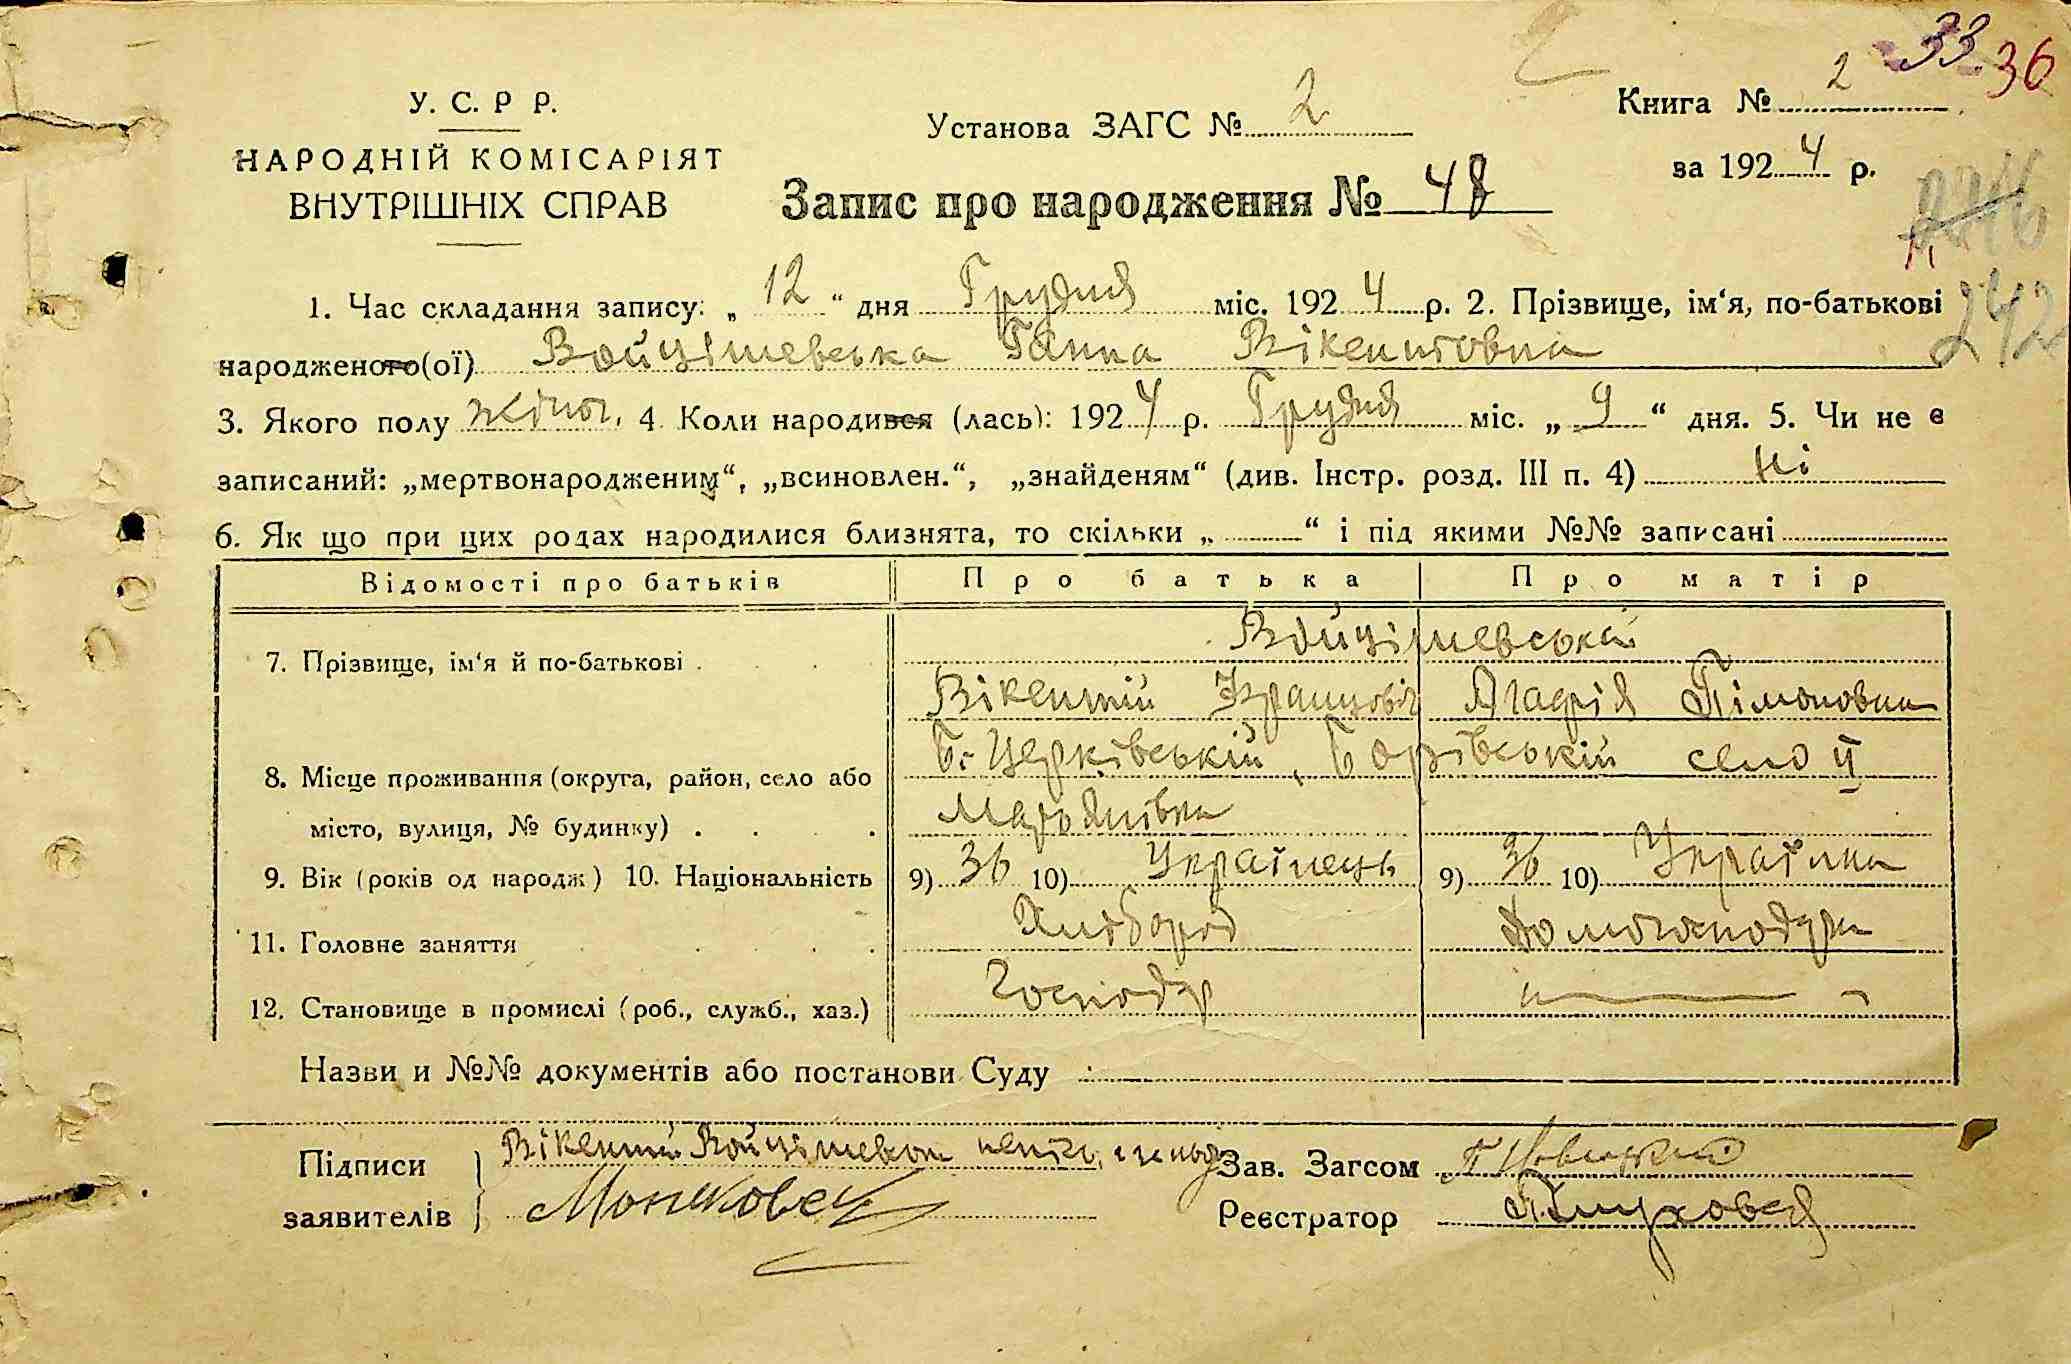 33 36
У. С. Р Р.
НАРОДНІЙ КОМІСАРІЯТ
ВНУТРІШНІХ СПРАВ
Установа ЗАГС № 2
Книга № 2
за 1924 р.
Запис про народження № 48
242
1. Час складання запису: „ 12 “ дня Грудня міс. 1924 р. 2. Прізвище, ім‘я, по-батькові
народженого(ої) Войцішевська Ганна Вікентовна
3. Якого полу жіноч. 4. Коли народився (лась): 1924 р. Грудня міс. „ 9 “ дня. 5. Чи не є
записаний: „мертвонародженим“, „всиновлен.“, „знайденям“ (див. Інстр. розд. III п. 4) Ні
6. Як що при цих родах народилися близнята, то скільки „ “ і під якими №№ записані
Відомості про батьків Про батька Про матір
Войцішевські
7. Прізвище, ім‘я й по-батькові
Вікентій Францовіч Агафія Пімоновна
Б-Церківській, село
8. Місце проживання (округа, район, село або
місто, вулиця, № будинку) Мар‘янівка
9. Вік (років од народж) 10. Національність 9) 36 10) Українець 9) 36 10) Українка
11. Головне заняття Хлібороб Домогосподарка
12. Становище в промислі (роб., служб., хаз.) Господар
Назви и №№ документів або постанови Суду
Підписи Вікентій Зав. Загсом
заявителів Реєстратор